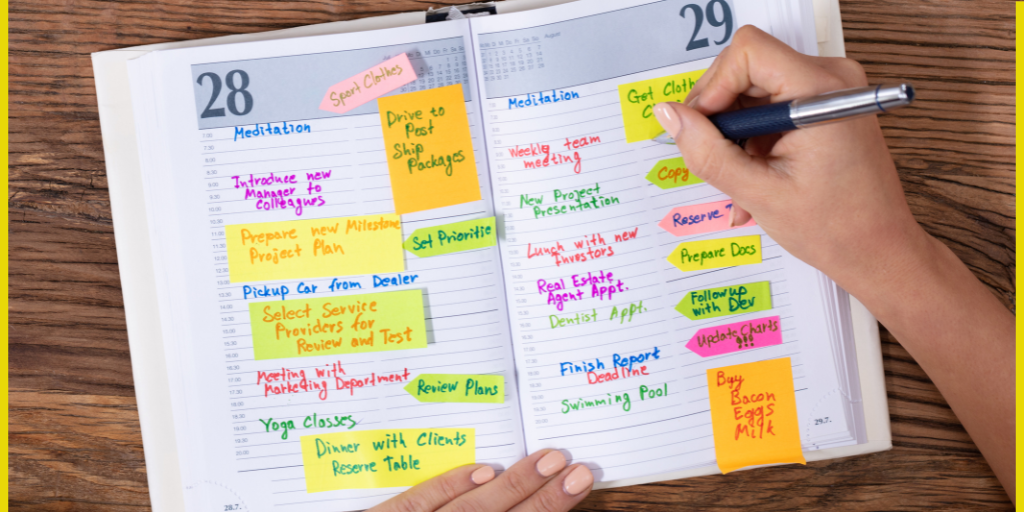 28
Sport Clothes
Meditation
Drive to
Post
Ship
Packages
Introduce new
Manager to
Colleagues
Prepare new Milestone
Project Plan
Set Prioritie
Pickup Car from Dealer
Select Service
Providers for
Review and Test
Meeting with
Marketing Department
Review Plans
Yoga Classes
Dinner with Clients
Reserve Table
28.7.
29
August
Meditation
Get Cloth
Weekly team
meeting
Copy
New Project
Presentation
Reserve T
Lunch with new
Investors
Prepare Docs
Real Estate
Agent Appt.
Dentist Appt.
Followup
with Dev
Update Charts
!!!
Finish Report
Deadline
Swimming Pool
Buy
Bacon
Eggs
Milk
29.7.